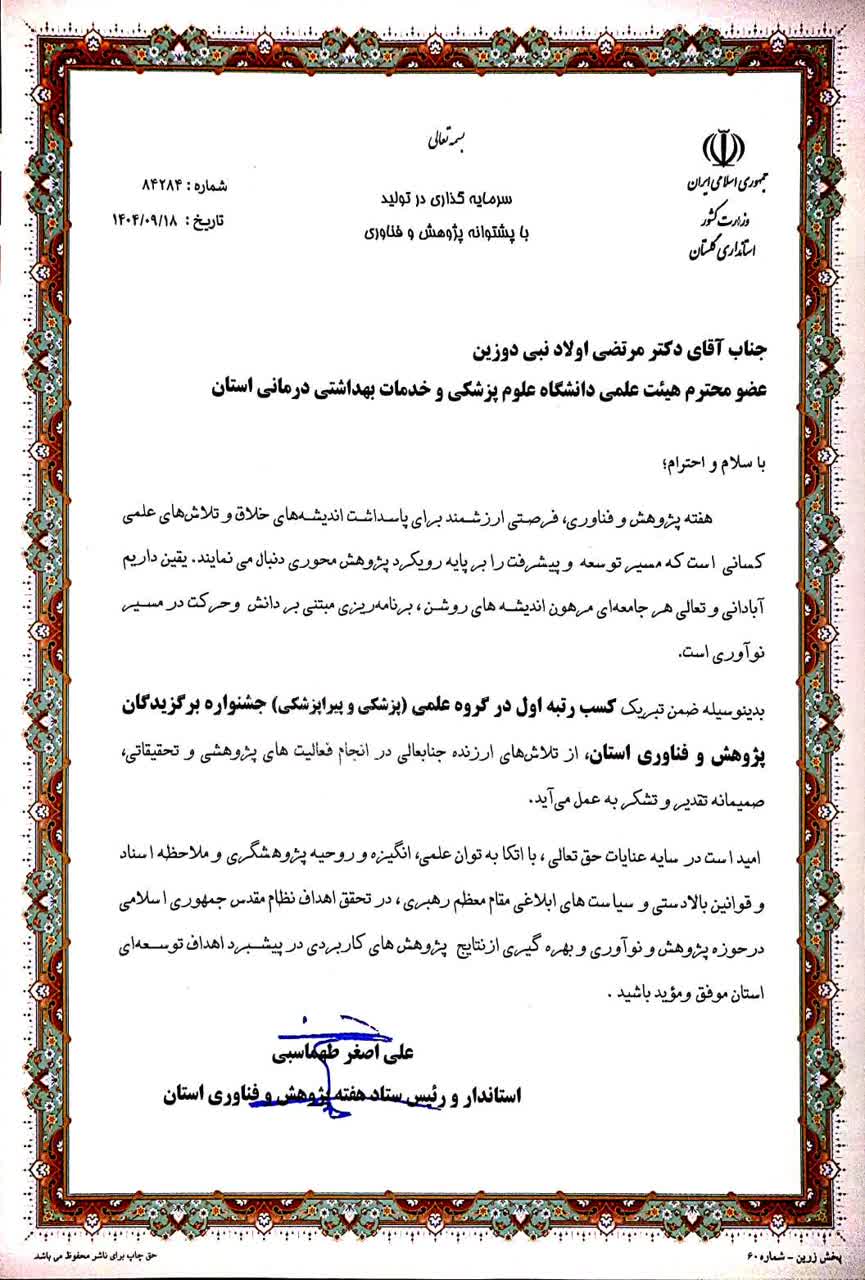 بسمه تعالی
جمهوری اسلامی ایران
وزارت کشور
استانداری گلستان
سرمایه گذاری در تولید
با پشتوانه پژوهش و فناوری
شماره : ۸۴۲۸۴
تاریخ : ۱۴۰۴/۰۹/۱۸
جناب آقای دکتر مرتضی اولاد نبی دوزین
عضو محترم هیئت علمی دانشگاه علوم پزشکی و خدمات بهداشتی درمانی استان
با سلام و احترام؛
هفته پژوهش و فناوری، فرصتی ارزشمند برای پاسداشت اندیشه‌های خلاق و تلاش‌های علمی
کسانی است که مسیر توسعه و پیشرفت را بر پایه رویکرد پژوهش محوری دنبال می نمایند. یقین داریم
آبادانی و تعالی هر جامعه‌ای مرهون اندیشه های روشن ، برنامه‌ریزی مبتنی بر دانش وحرکت در مسیر
نوآوری است.
بدینوسیله ضمن تبریک کسب رتبه اول در گروه علمی (پزشکی و پیراپزشکی) جشنواره برگزیدگان
پژوهش و فناوری استان، از تلاش‌های ارزنده جنابعالی در انجام فعالیت های پژوهشی و تحقیقاتی،
صمیمانه تقدیر و تشکر به عمل می‌آید.
امید است در سایه عنایات حق تعالی ، با اتکا به توان علمی، انگیزه و روحیه پژوهشگری و ملاحظه اسناد
و قوانین بالادستی و سیاست های ابلاغی مقام معظم رهبری ، در تحقق اهداف نظام مقدس جمهوری اسلامی
درحوزه پژوهش و نوآوری و بهره گیری ازنتایج پژوهش های کاربردی در پیشبرد اهداف توسعه‌ای
استان موفق ومؤید باشید .
علی اصغر طهماسبی
استاندار و رئیس ستاد هفته پژوهش و فناوری استان
پخش زرین - شماره ۶۰
حق چاپ برای ناشر محفوظ می باشد